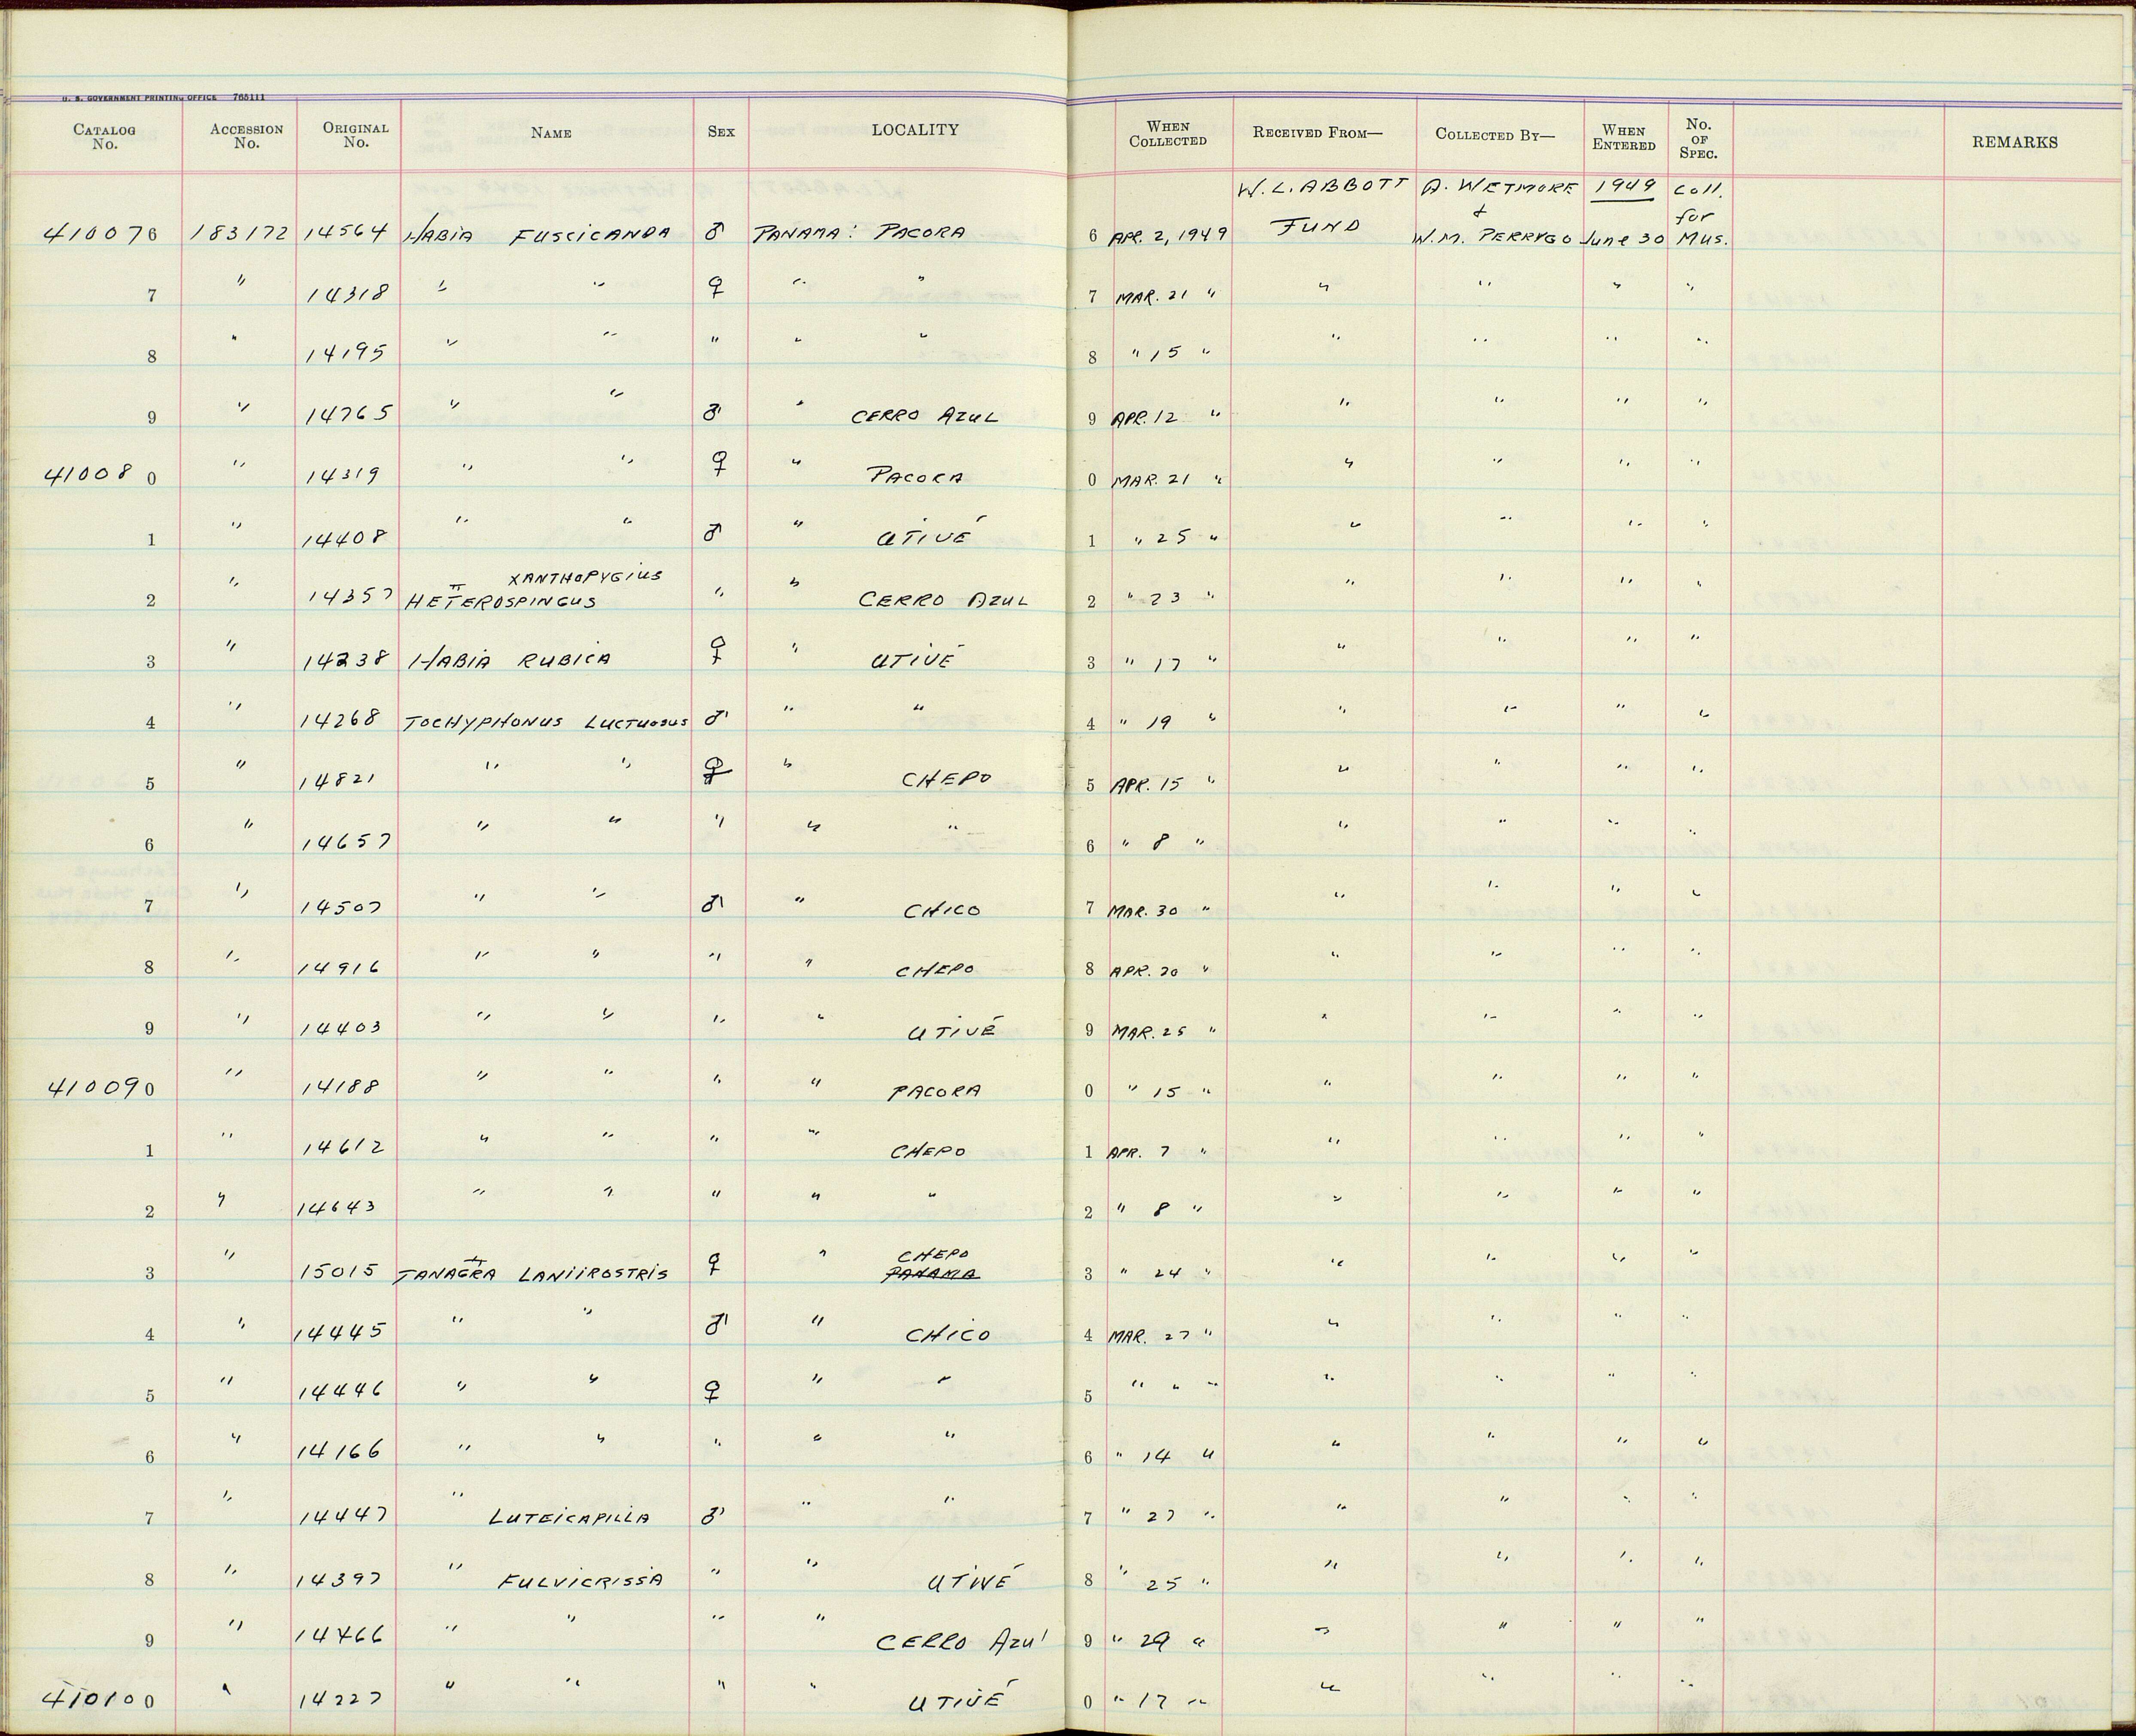 U. S. GOVERNMENT PRINTING OFFICE 765111
CATALOG No. ACCESSION No. ORIGINAL No. NAME SEX LOCALITY WHEN COLLECTED RECEIVED FROM— COLLECTED BY— WHEN ENTERED No. OF SPEC. REMARKS
W. L. ABBOTT A. WETMORE 1949 Coll.
FUND & for
410076 183172 14564 HABIA FUSCICANDA ♂ PANAMA: PACORA 6 APR. 2, 1949 W.M. PERRYGO June 30 Mus.
7 " 14318 " " ♀ " " 7 MAR. 21 " " " " "
8 " 14195 " " " " " 8 " 15 " " " " "
9 " 14765 " " ♂ " CERRO AZUL 9 APR. 12 " " " " "
410080 " 14319 " " ♀ " PACORA 0 MAR. 21 " " " " "
1 " 14408 " " ♂ " UTIVÉ 1 " 25 " " " " "
XANTHOPYGIUS
2 " 14357 HETEROSPINGUS " " CERRO AZUL 2 " 23 " " " " "
3 " 14238 HABIA RUBICA ♀ " UTIVÉ 3 " 17 " " " " "
4 " 14268 TOCHYPHONUS LUCTUOSUS ♂ " " 4 " 19 " " " " "
5 " 14821 " " ♀ " CHEPO 5 APR. 15 " " " " "
6 " 14657 " " " " " 6 " 8 " " " " "
7 " 14507 " " ♂ " CHICO 7 MAR. 30 " " " " "
8 " 14916 " " " " CHEPO 8 APR. 20 " " " " "
9 " 14403 " " " " UTIVÉ 9 MAR. 25 " " " " "
410090 " 14188 " " " " PACORA 0 " 15 " " " " "
1 " 14612 " " " " CHEPO 1 APR. 7 " " " " "
2 " 14643 " " " " " 2 " 8 " " " " "
CHEPO
3 " 15015 TANAGRA LANIIROSTRIS ♀ " PANAMA 3 " 24 " " " " "
4 " 14445 " " ♂ " CHICO 4 MAR. 27 " " " " "
5 " 14446 " " ♀ " " 5 " " " " " " "
6 " 14166 " " " " " 6 " 14 " " " " "
7 " 14447 " LUTEICAPILLA ♂ " " 7 " 27 " " " " "
8 " 14397 " FULVICRISSA " " UTIVÉ 8 " 25 " " " " "
9 " 14466 " " " " CERRO Azul 9 " 29 " " " " "
410100 " 14227 " " " " UTIVÉ 0 " 17 " " " " "